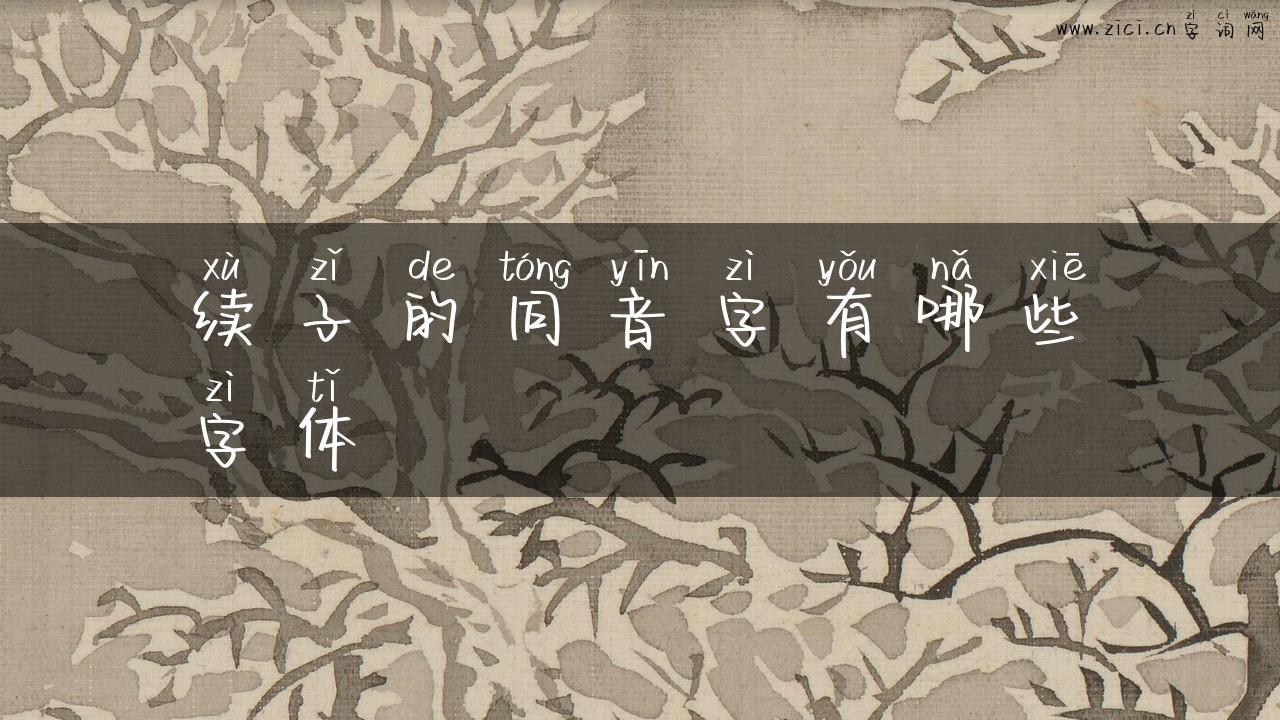 www.zici.cn zì cí wǎng
字词网
xù zǐ de tóng yīn zì yǒu nǎ xiē
续子的同音字有哪些
zì tǐ
字体